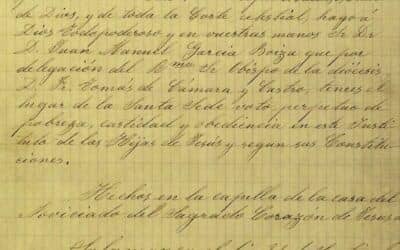 de Dios, y de toda la Corte celestial, hago á
Dios Todopoderoso y en vuestras manos Sr Dr
D. Juan Manuel Garcia Boiza que por
delegación del Rmo Sr Obispo de la diócesis
D. Fr. Tomás de Cámara y Castro, teneis el
lugar de la Santa Sede voto perpetuo de
pobreza, castidad y obediencia en este Insti-
tulo de las Hijas de Jesús y segun sus Constitu-
ciones.
Hechos en la capilla de la casa del
Noviciado del Sagrado Corazon de Jesus